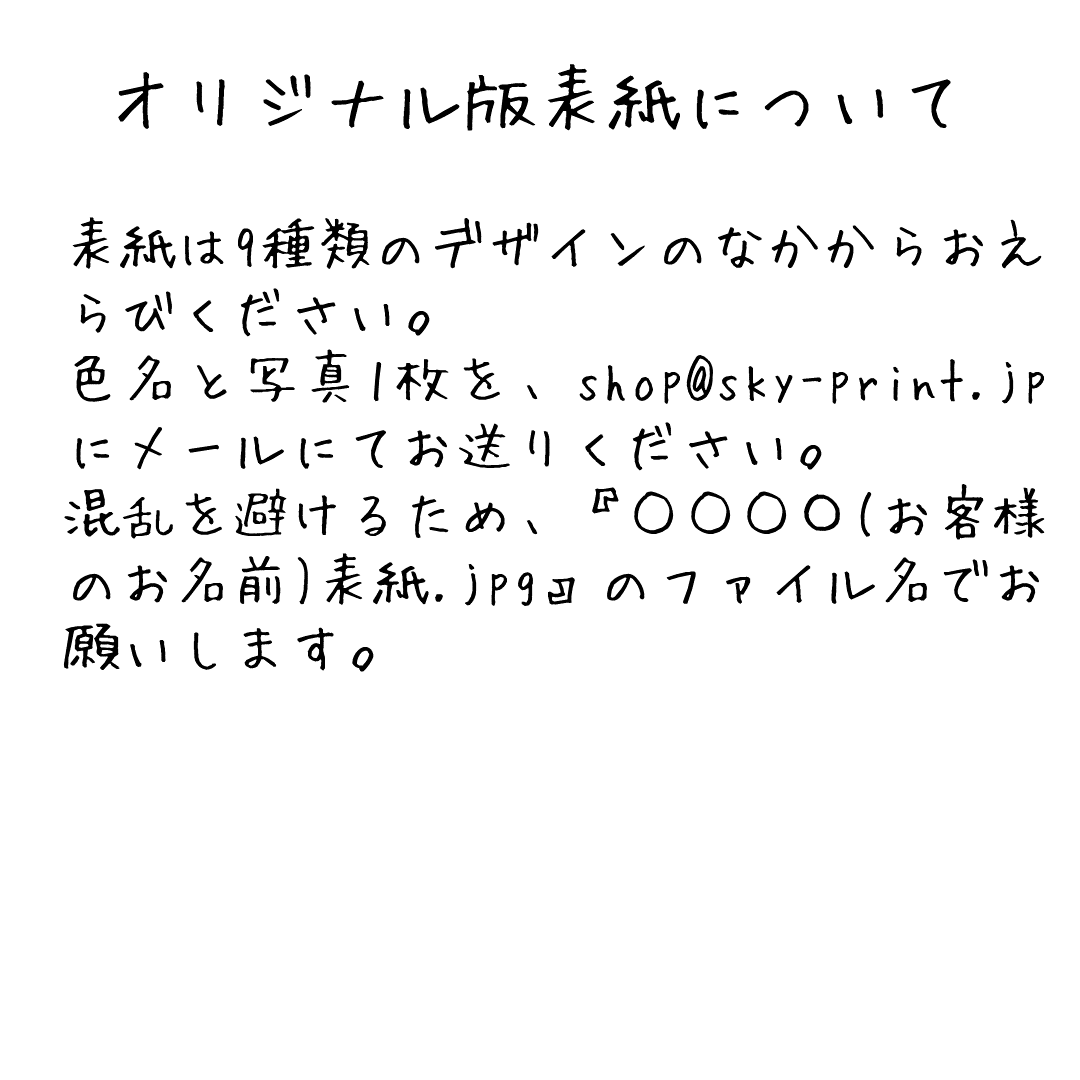 オリジナル版表紙について
表紙は9種類のデザインのなかからおえ
らびください。
色名と写真1枚を、shop@sky-print.jp
にメールにてお送りください。
混乱を避けるため、『〇〇〇〇(お客様
のお名前)表紙.jpg』のファイル名でお
願いします。